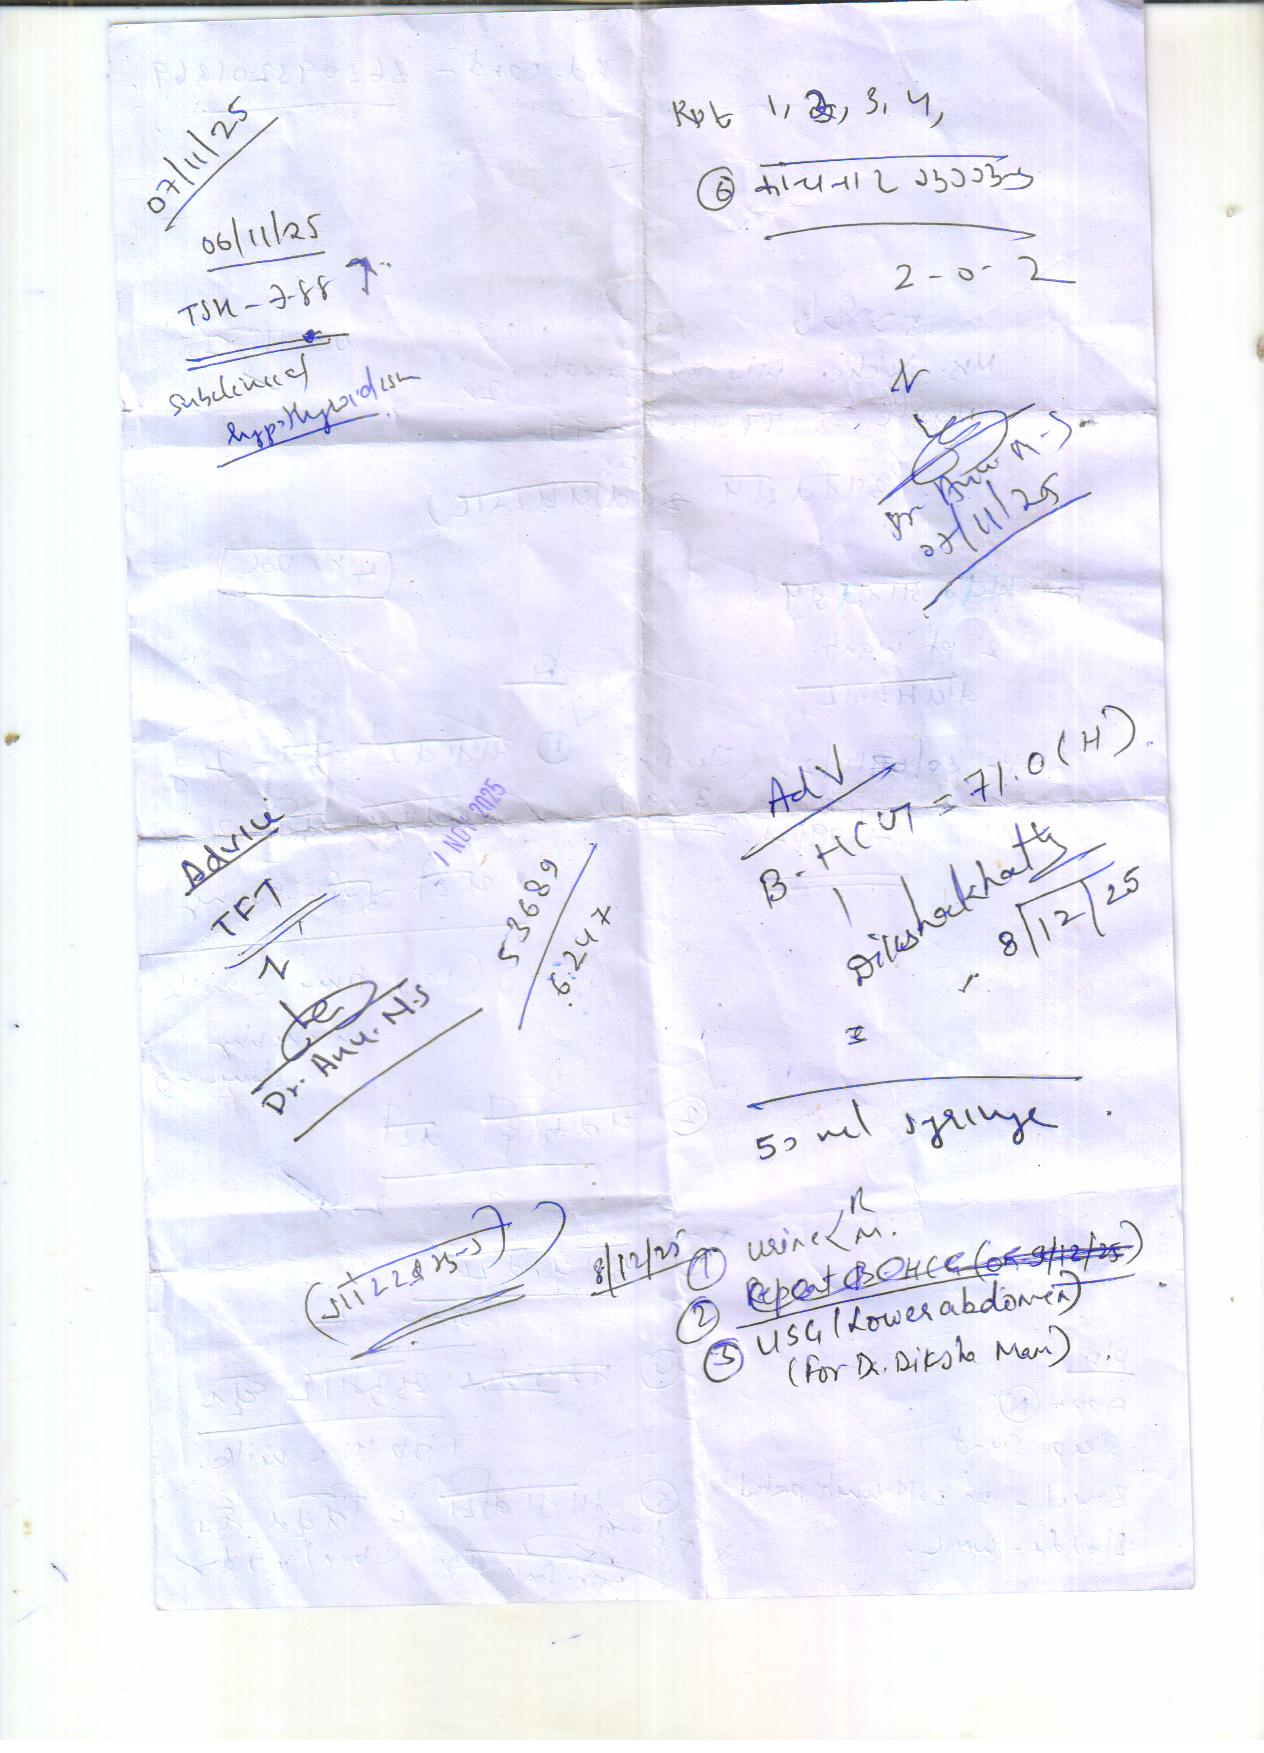 07/11/25
06/11/25
TSH - 7.88 ↑
subclinical
hypothyroidism
Advice
TFT
Dr. Anu. N.S
1 NOV 2025
53689
6247
Rpt 1, 2, 3, 4,
⑥ कांचनार गुग्गुलु
2-0-2
Dr. Anu. N.S
07/11/25
Adv
B-HCG = 71.0 (H)
8/12/25
50 ml syringe
8/12/25 ① urine < R
M.
② Repeat B HCG (on 9/12/25)
③ USG (Lower abdomen)
(for Dr. Diksha Mam)